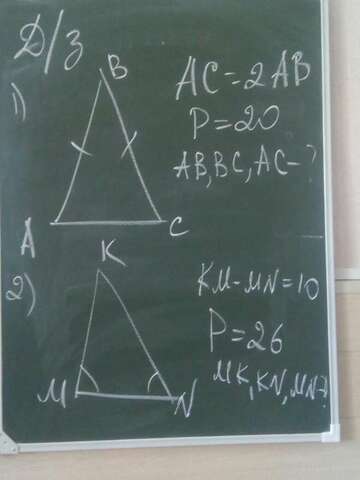 Д/З
1)
B
A
C
AC=2AB
P=20
AB, BC, AC-?
2)
K
M
N
KM-MN=10
P=26
MK, KN, MN-?